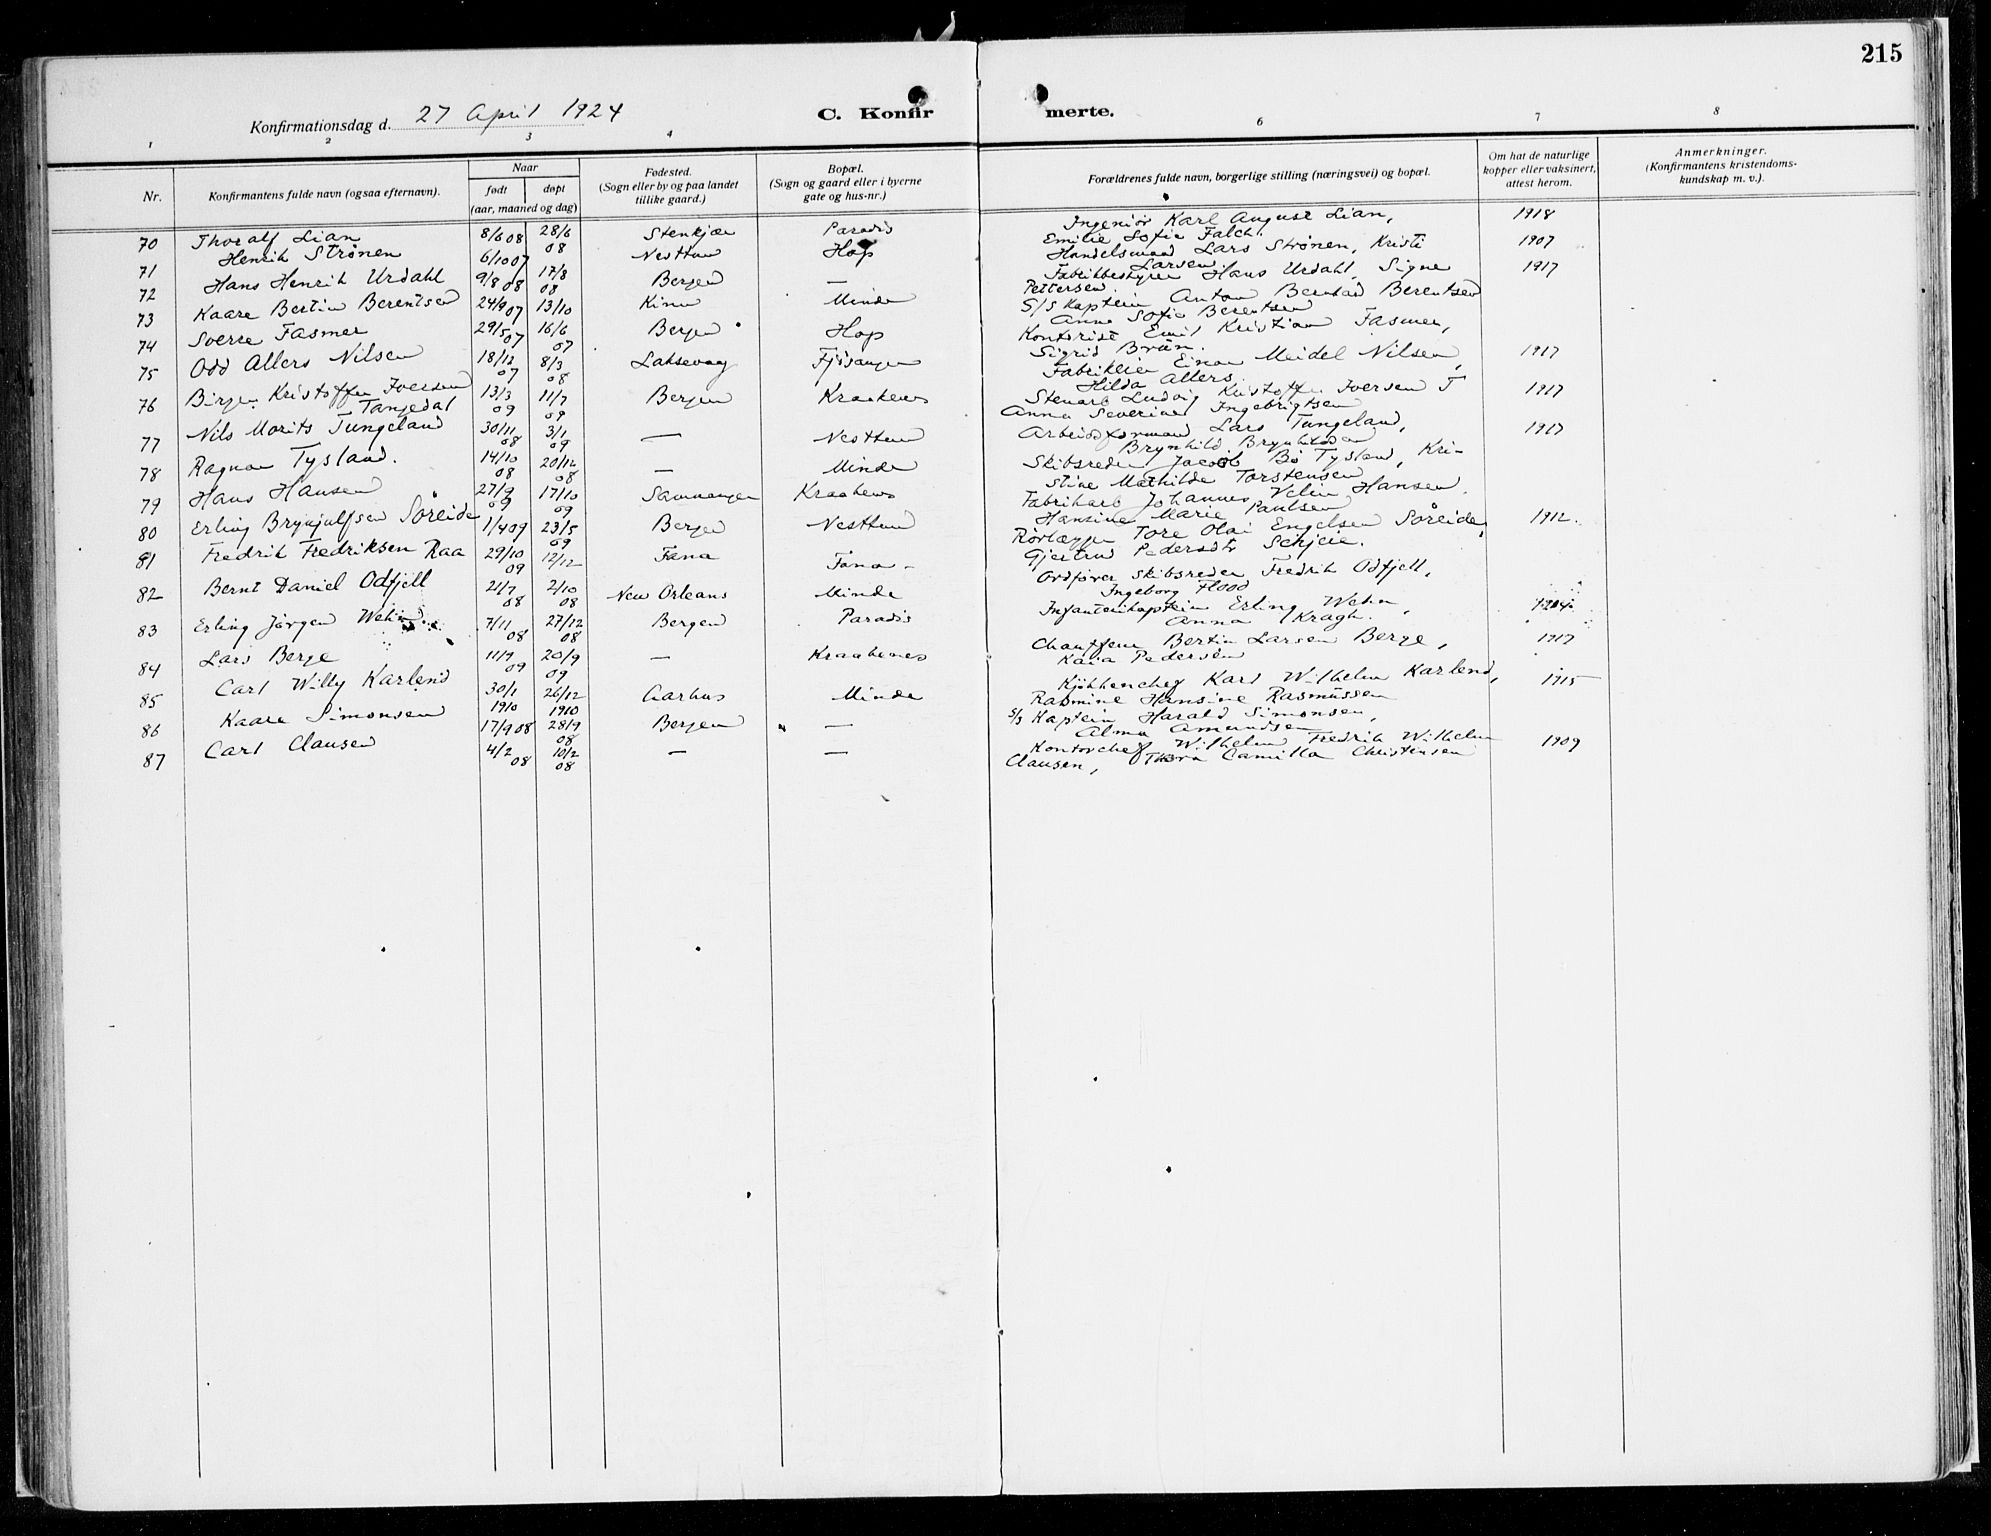 215
Konfirmationsdag d. 27 April 1924
C. Konfir
merte.
1 2 3 4 6 7 8
Nr.
Konfirmantens fulde navn (ogsaa efternavn).
Naar
født
døpt
(aar, maaned og dag)
Fødested.
(Sogn eller by og paa landet
tillike gaard.)
Bopæl.
(Sogn og gaard eller i byerne
gate og hus-nr.)
Forældrenes fulde navn, borgerlige stilling (næringsvei) og bopæl.
Om hat de naturlige
kopper eller vaksinert,
attest herom.
Anmerkninger.
(Konfirmantens kristendoms-
kundskap m. v.).
70 Thoralf Lian 8/6 08 28/6 08 Stenkjær Paradis Ingeniør Karl August Lian, 1918
Emilie Sofie Falch.
71 Henrik Strønen 6/10 07 Nesttun Hop Handelsmand Lars Strønen, Kristi 1907
Larsen
72 Hans Henrik Urdahl 9/8 08 17/8 08 Bergen — Fabrikbestyrer Hans Urdahl, Signe 1917
Pettersen
73 Kaare Bertin Berentsen 24/9 07 13/10 Kinn Minde S/S Kaptein Anton Bernhard Berentsen
Anna Sofie Berentsen
74 Sverre Fasmer 29/5 07 16/6 07 Bergen Hop Kontorist Emil Kristian Fasmer,
Sigrid Brün.
75 Odd Allers Nilsen 18/12 07 8/3 08 Laksevaag Fjøsanger Fabrikeier Einar Meidel Nilsen, 1917
Hilda Allers
76 Birger Kristoffer Iversen 13/3 09 11/7 09 Bergen Kraakenes Stenarb Ludvig Kristoffer Iversen T 1917
Tangedal Anna Severine Ingebrigtsen
77 Nils Morits Tungeland 30/11 08 3/1 09 — Nesttun Arbeidsformand Lars Tungeland, 1917
Brynhild
78 Ragnar Tysland. 14/10 08 20/12 08 — Minde Skibsreder Jacob Bø Tysland, Kri-
stine Mathilde Torstensen
79 Hans Hansen 27/9 09 17/10 09 Samnanger Kraakenes Fabrikarb Johannes Velin Hansen,
Hansine Marie Paulsen
80 Erling Brynjulfsen Søreide 1/4 09 23/5 09 Bergen Nesttun Rørlægger Tore Olai Engelsen Søreide, 1912.
Gjertrud Pedersdtr Schjeie.
81 Fredrik Fredriksen Raa 29/10 09 12/12 Fana Fana -
82 Bernt Daniel Odfjell 21/7 08 2/10 08 New Orleans Minde Ordfører Skibsreder Fredrik Odfjell,
Ingeborg Flood
83 Erling Jørgen Wehn 7/11 08 27/12 08 Bergen Paradis Infanterikaptein Erling Wehn,
Anna Kragh.
84 Lars Berge 11/9 09 20/9 09 — Kraakenes Chauffeur Bertin Larsen Berge, 1917
Kaia Pedersen
85 Carl Willy Karlend 30/1 1910 26/12 1910 Aarhus Minde Kjøkkenchef Karl Wilhelm Karlend, 1915
Rasmine Hansine Rasmussen
86 Kaare Simonsen 17/9 08 28/9 08 Bergen — S/S Kaptein Harald Simonsen,
Alma Amundsen
87 Carl Clausen 4/2 08 10/2 08 — — Kontorchef Wilhelm Fredrik Wilhelm 1909
Clausen, Thora Camilla Christensen